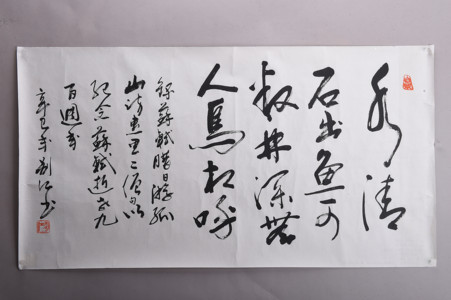 水清
石出魚可
数林深無
人鳥相呼
錄蘇軾臘日遊孤
山訪惠二僧以
紀念蘇軾逝世九
百週年
辛巳年劉江書